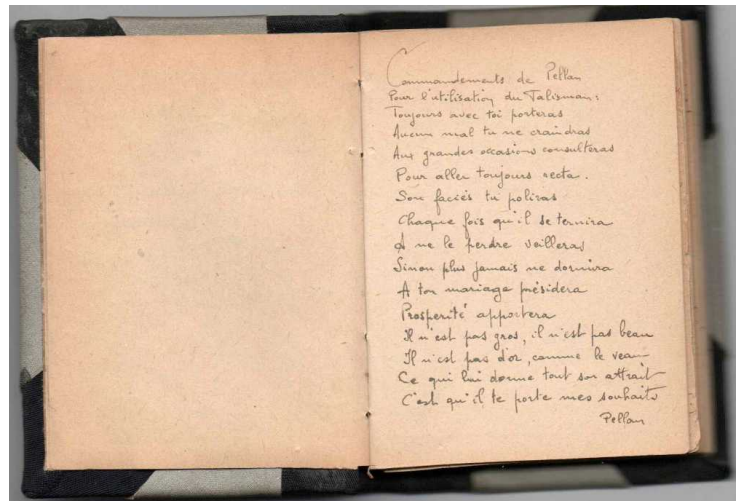 Commandements de Pellan
Pour l'utilisation du Talisman :
Toujours avec toi porteras
Aucun mal tu ne craindras
Aux grandes occasions consulteras
Pour aller toujours recta.
Son faciès tu poliras
Chaque fois qu'il se ternira
À ne le perdre veilleras
Sinon plus jamais ne dormira
A ton mariage présidera
Prosperité apportera
Il n'est pas gros, il n'est pas beau
Il n'est pas d'or, comme le veau
Ce qui lui donne tout son attrait
C'est qu'il te porte mes souhaits
Pellan